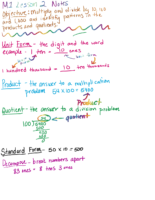 M.1 Lesson 2 Notes
Objective: Multiply and divide by 10, 100
and 1,000 and identify patterns in the
products and quotients.
Unit Form - the digit and the word
example: 1 ten = 10 ones
1 hundred thousand = 10 ten thousands
Product - the answer to a multiplication
problem 54 x 100 = 5400
Product
Quotient - the answer to a division problem
quotient
Standard Form - 50 x 10 = 500
Decompose - break numbers apart
83 ones = 8 tens 3 ones